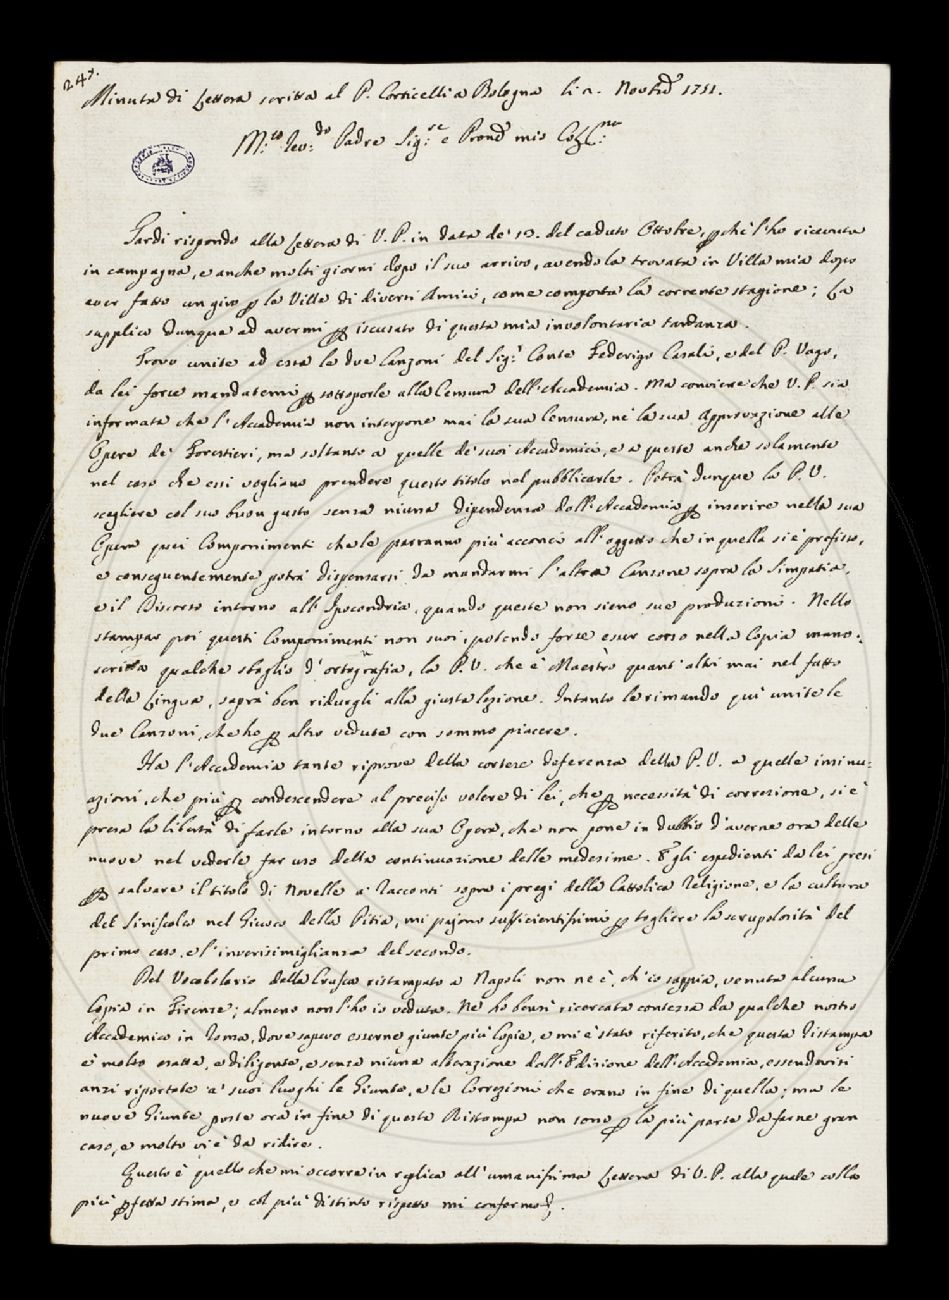 247.
Minuta di Lettera scritta al P. Corticelli a Bologna li 2. Novbre 1751.
M.to Rev.do Padre Sig.re e Prone mio Coll.mo
Tardi rispondo alla Lettera di V. P. in data de' 12. del caduto Ottobre, pchè l'ho ricevuta
in campagna, e anche molti giorni dopo il suo arrivo, avendola trovata in Villa mia dopo
aver fatto un giro p le Ville di diversi Amici, come comporta la corrente stagione; La
supplico dunque ad avermi p iscusato di questa mia involontaria tardanza.
Trovo unite ad essa le due Canzoni del Sig.r Conte Federigo Casali, e del P. Vago,
da lei forse mandatemi p sottoporle alla Censura dell'Accademia. Ma conviene che V. P. sia
informata che l'Accademia non interpone mai la sua Censura, nè la sua Approvazione alle
Opere de' Forestieri, ma soltanto a quelle de' suoi Accademici, e a queste anche solamente
nel caso che essi vogliano prendere questo titolo nel pubblicarle. Potrà dunque la P. V.
scegliere col suo buon gusto senza niuna dipendenza dall'Accademia p inserire nella sua
Opera quei Componimenti che le parranno più acconci all'oggetto che in quella si è prefisso,
e conseguentemente potrà dispensarsi da mandarmi l'altra Canzone sopra la Simpatia,
e il Discorso intorno all'Ipocondria, quando queste non sieno sue produzioni. Nello
stampar poi questi Componimenti non suoi, potendo forse esser corso nella Copia mano=
scritta qualche sbaglio d'ortografia, la P. V. che è Maestro quant'altri mai nel fatto
della Lingua, saprà ben ridurgli alla giusta lezione. Intanto le rimando quì unite le
due Canzoni, che ho p altro vedute con sommo piacere.
Ha l'Accademia tante riprove della cortese deferenza della P. V. a quelle insinu=
azioni, che più p condescendere al preciso volere di lei, che p necessità di correzione, si è
presa la libertà di farle intorno alla sua Opera, che non pone in dubbio d'averne ora delle
nuove nel vederle far uso della continuazione delle medesime. E gli espedienti da lei presi
p salvare il titolo di Novelle a' Racconti sopra i pregi della Cattolica Religione, e la cultura
del Siniscalco nel Giuoco della Pitia, mi pajono sufficientissimi p togliere la scrupolosità del
primo caso, e l'inverisimiglianza del secondo.
Del Vocabolario della Crusca ristampato a Napoli non ne è, ch'io sappia, venuta alcuna
Copia in Firenze; almeno non l'ho io veduta. Ne ho bensì ricercata contezza da qualche nostro
Accademico in Roma, dove sapevo esserne giunte più Copie, e mi è stato riferito, che questa Ristampa
è molto esatta, e diligente, e senza niuna alterazione dall'Edizione dell'Accademia, essendovisi
anzi riportate a' suoi luoghi le Giunte, e le Correzioni che erano in fine di quella; ma le
nuove Giunte poste ora in fine di questa Ristampa non sono p la più parte da farne gran
caso, e molto vi è da ridire.
Questo è quello che mi occorre in replica all'umanissima Lettera di V. P. alla quale colla
più pfetta stima, e col più distinto rispetto mi confermo